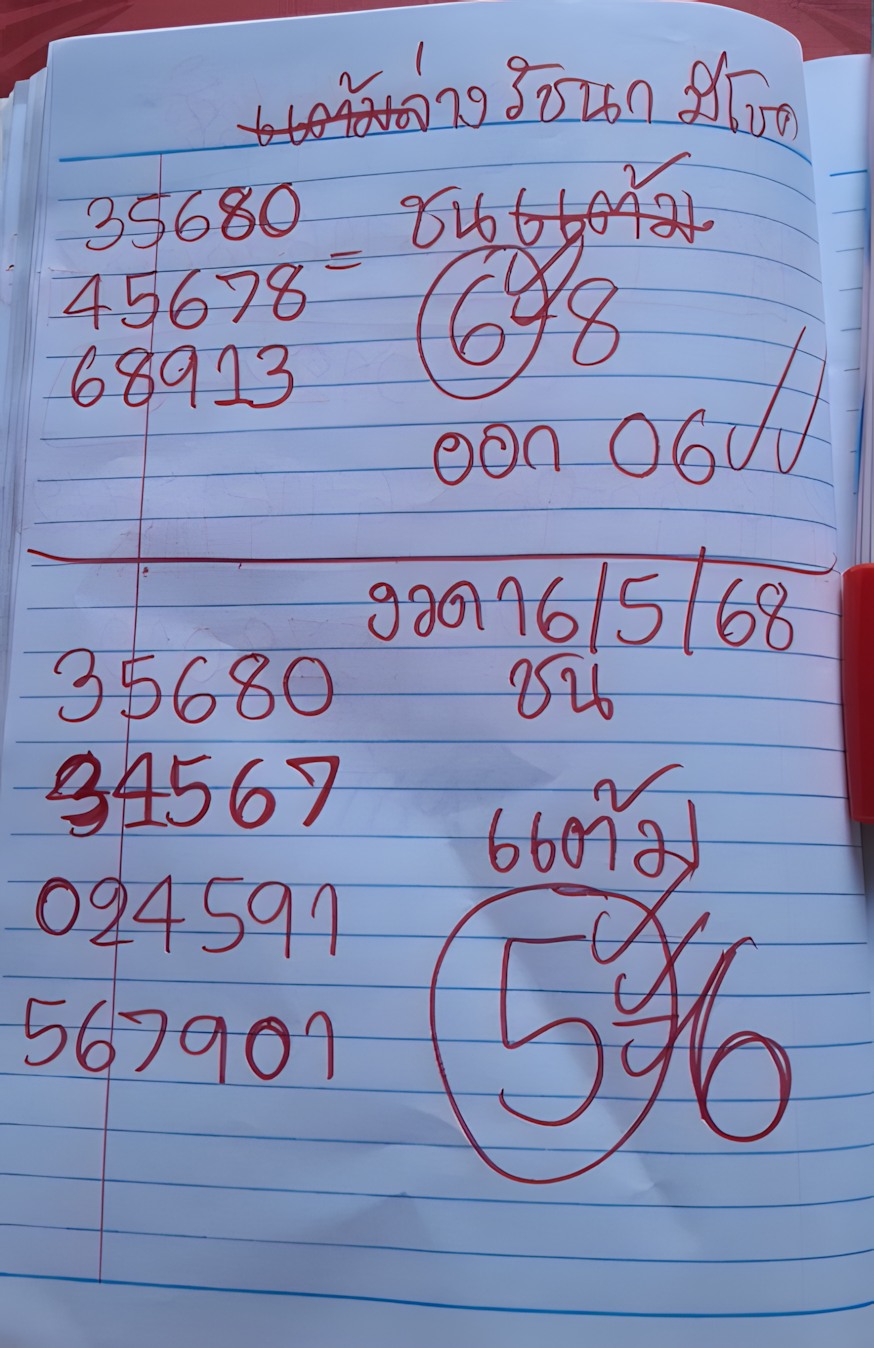 แต้มล่าง รัชนก มีโชค
35680
45678 = ชนแต้ม
68913
6 8
ออก 06
งวด 16/5/68
35680 ชน
34567
แต้ม
024591
5 6
567901